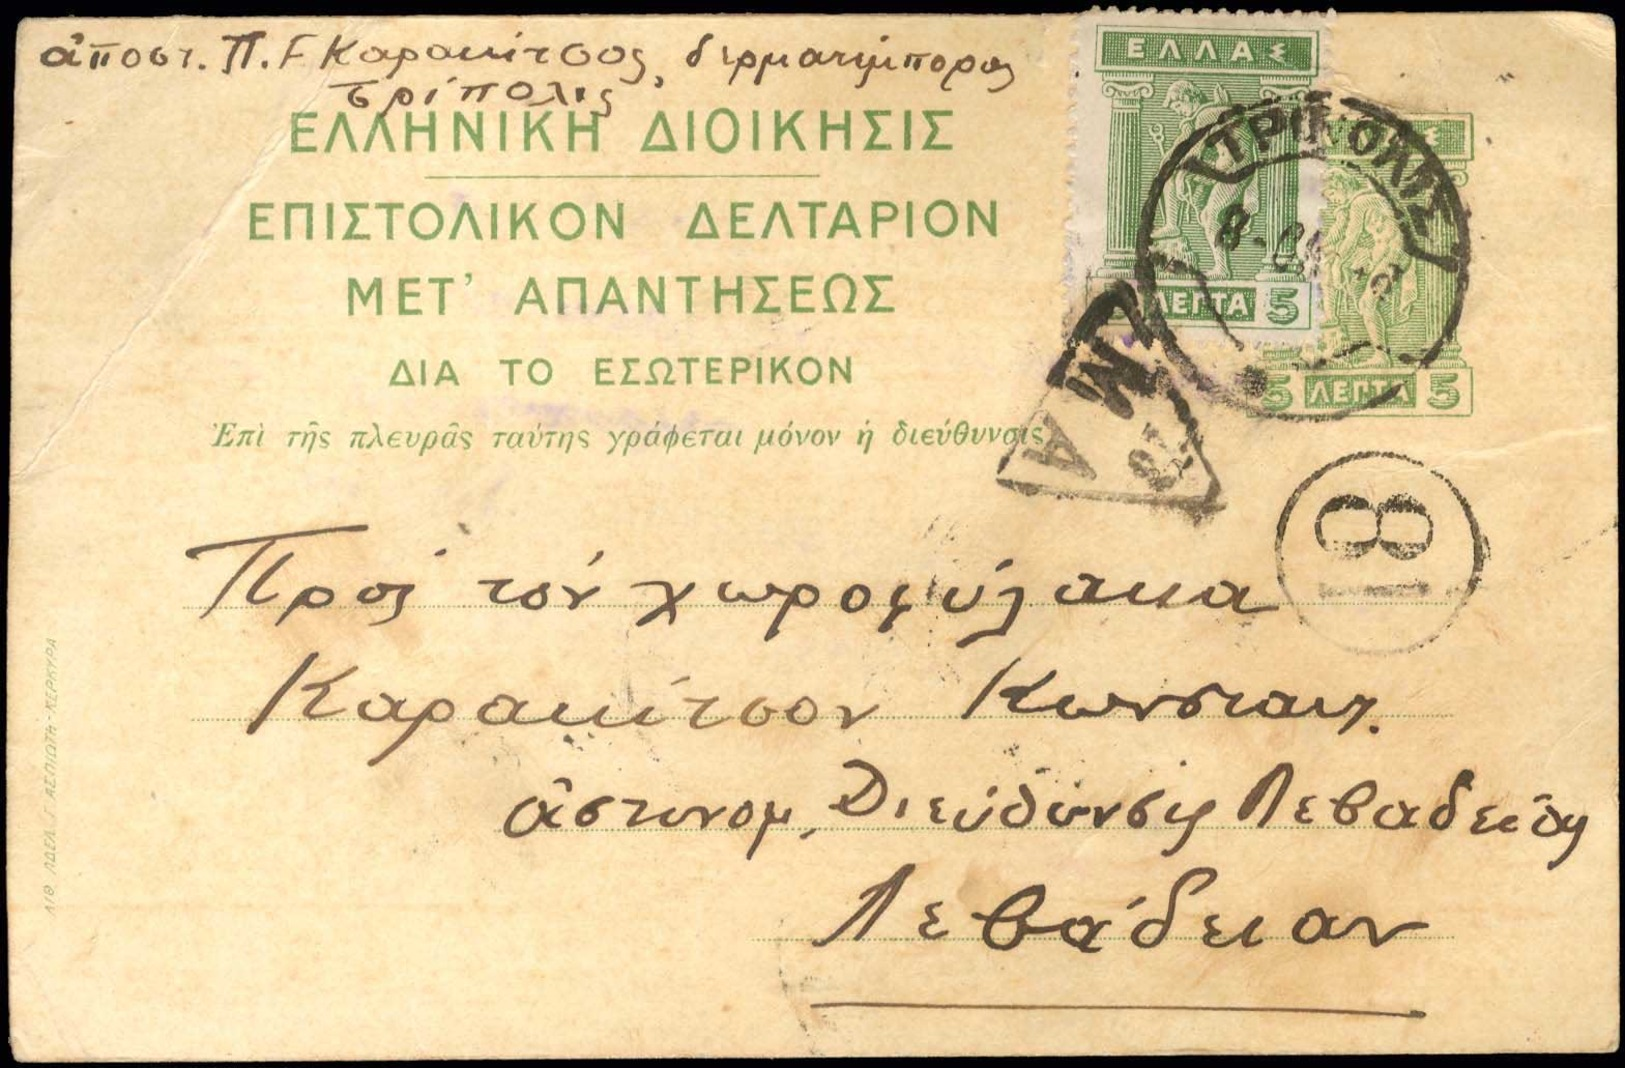 ἀποστ. Π. Γ Καρακίτσος, δερματέμπορος
Τρίπολις
ΕΛΛΑΣ
ΕΛΛΗΝΙΚΗ ΔΙΟΙΚΗΣΙΣ
ΕΠΙΣΤΟΛΙΚΟΝ ΔΕΛΤΑΡΙΟΝ
ΜΕΤ' ΑΠΑΝΤΗΣΕΩΣ
ΔΙΑ ΤΟ ΕΣΩΤΕΡΙΚΟΝ
Ἐπὶ τῆς πλευρᾶς ταύτης γράφεται μόνον ἡ διεύθυνσις
ΤΡΙΠΟΛΙΣ
ΛΕΠΤΑ 5
5 ΛΕΠΤΑ 5
Α
18
8
Πρὸς τόν χωροφύλακα
Καρακίτσον Κωνσταντ.
ἀστυνομ. Διεύθυνσις Λεβαδείας
Λεβάδειαν
ΛΙΘ. ΑΔΕΛ. Γ. ΑΣΠΙΩΤΗ - ΚΕΡΚΥΡΑ